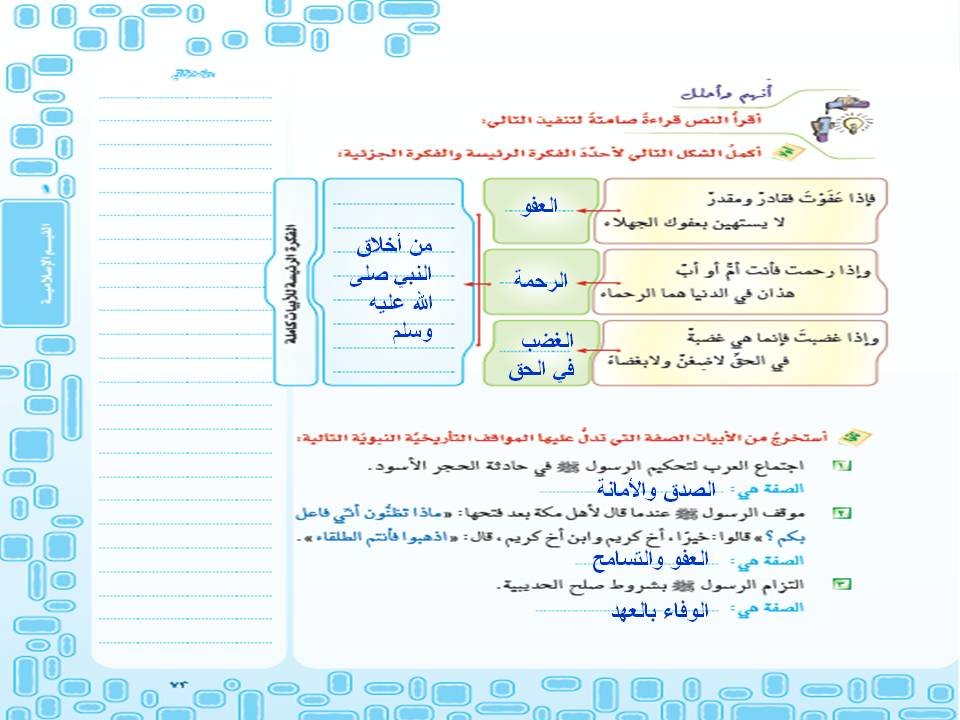 أفهم وأحلل
أقرأ النص قراءةً صامتةً لتنفيذ التالي:
أكملُ الشكل التالي لأحدّدَ الفكرة الرئيسة والفكرة الجزئية:
فإذا عَفَوْتَ فقادرٌ ومقدرٌ
لا يستهين بعفوك الجهلاء
العفو
وإذا رحمت فأنت أمٌّ أو أبٌ
هذان في الدنيا هما الرحماء
الرحمة
وإذا غضبتَ فإنما هي غضبةٌ
في الحقّ لاضِغنٌ ولابغضاءُ
الغضب
في الحق
من أخلاق
النبي صلى
الله عليه
وسلم
الفكرة الرئيسة للأبيات كاملة
أستخرجُ من الأبيات الصفة التي تدلُّ عليها المواقف التأريخيّة النبويّة التالية:
١ اجتماع العرب لتحكيم الرسول ﷺ في حادثة الحجر الأسود.
الصفة هي: الصدق والأمانة
٢ موقف الرسول ﷺ عندما قال لأهل مكة بعد فتحها: «ماذا تظنُّون أنّي فاعل
بكم؟» قالوا: خيرًا، أخ كريم وابن أخ كريم، قال: «اذهبوا فأنتم الطلقاء».
الصفة هي: العفو والتسامح
٣ التزام الرسول ﷺ بشروط صلح الحديبية.
الصفة هي: الوفاء بالعهد
القيم الإسلامية
٧٣